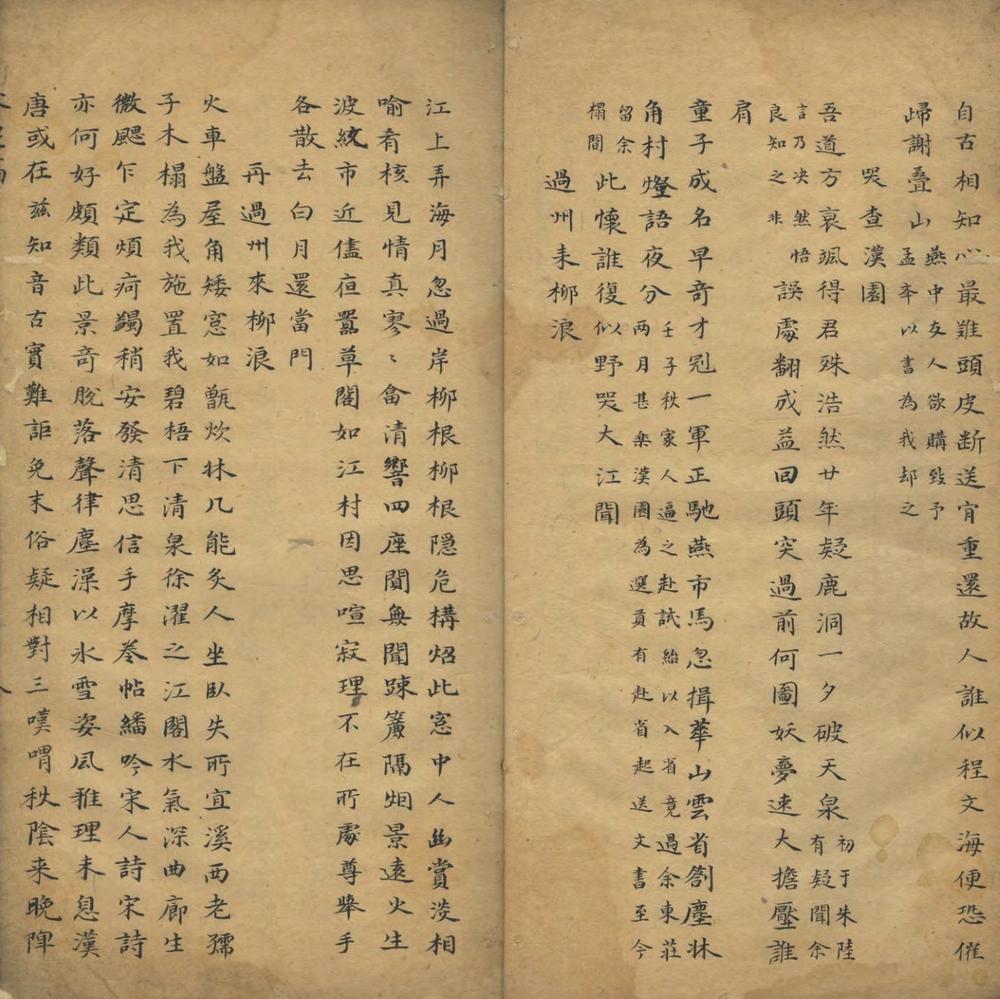 自古相知心最難頭皮断送肯重還故人誰似程文海便恐催
歸謝疊山
燕中友人欲購致予
孟奔以書為我却之
哭查漢園
吾道方哀颯得君殊浩然廿年疑鹿洞一夕破天泉
初于朱陸
有疑聞余
言乃决然悟
良知之非
誤處翻成益回頭突過前何圖妖夢速大擔壓誰
肩
童子成名早奇才冠一軍正馳燕市馬忽揖華山雲省劄塵牀
角村燈語夜分
壬子秋家人逼之赴試紿以入省竟過余東莊
兩月甚楽漢園為選貢有赴省起送文書至今
留余
榻間
此懷誰復似野哭大江聞
過州来柳浪
江上弄海月忽過岸柳根柳根隱危構炤此窓中人幽賞淡相
喻肴核見情真寥〻畣清響四座闃無聞踈簾隔烟景遠火生
波紋市近儘亱囂草閣如江村因思喧寂理不在所處尊舉手
各散去白月還當門
再過州來柳浪
火車盤屋角矮窓如甑炊牀几能炙人坐臥失所宜溪西老孺
子木榻為我施置我碧梧下清泉徐濯之江閣水氣深曲廊生
微颸乍定煩疴蠲稍安發清思信手摩卷帖繙吟宋人詩宋詩
亦何好頗類此景奇脫落聲律塵澡以氷雪姿風雅理未息漢
唐或在茲知音古實難詎免末俗疑相對三嘆喟秋陰来晚陴